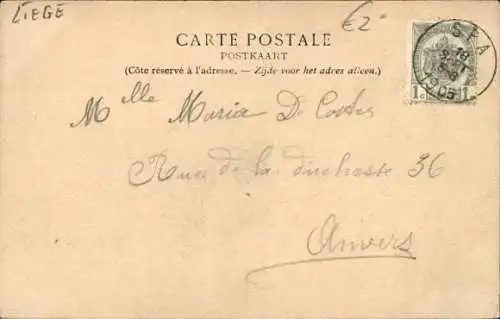 LIEGE
€2
CARTE POSTALE
POSTKAART
(Côte réservé à l'adresse. — Zijde voor het adres alleen.)
SPA
1905
1c 1c
Melle Maria De Coster
Rue de la duchesse 36
Anvers